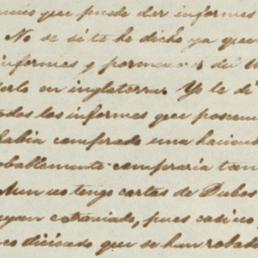 que puede dar informes
No se si te he dicho ya que
informes y pormenores del
en inglaterra Yo le di
los informes que poseem
había comprado una hacienda
probablemente compraria tam
Aun no tengo cartas de Dubos
extraviado, pues casi no
diciendo que se han robado